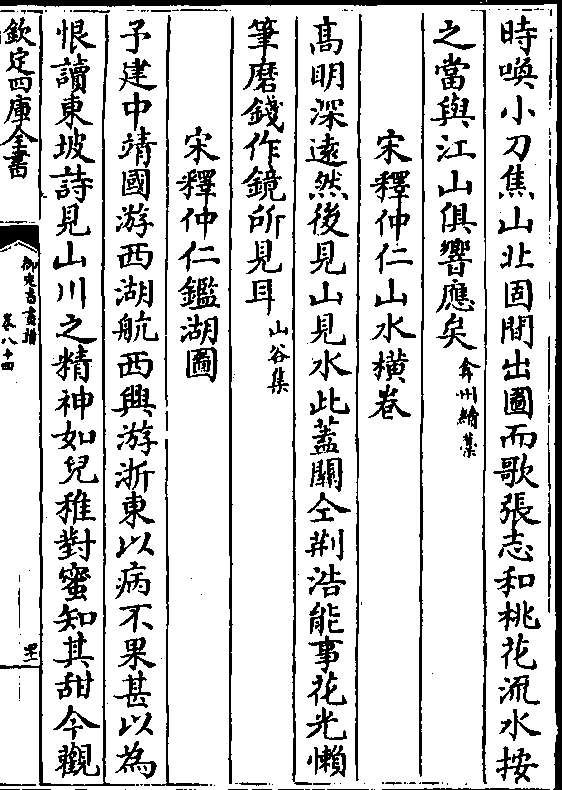 時喚小刀焦山北固間出圖而歌張志和桃花流水按
之當與江山俱響應矣弇州續藁
宋釋仲仁山水横卷
髙明深逺然後見山見水此蓋關仝荆浩能事花光懶
筆磨錢作鏡所見耳山谷集
宋釋仲仁鑑湖圖
予建中靖國游西湖航西興游浙東以病不果甚以為
恨讀東坡詩見山川之精神如兒稚對蜜知其甜今觀
欽定四庫全書
御定書畫譜
卷八十四